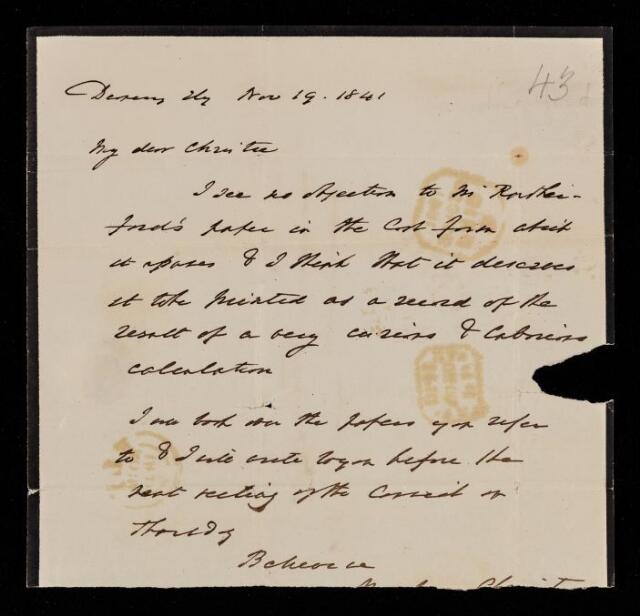 43
Deanery Ely Nov 19. 1841
My dear Christie
I see no objection to Mr Ruther-
ford's paper in the last form which
it assumes & I think that it deserves
it to be printed as a record of the
result of a very curious & laborious
calculation
I will look over the papers you refer
to & I will write to you before the
next meeting of the Council on
Thursday
Believe me